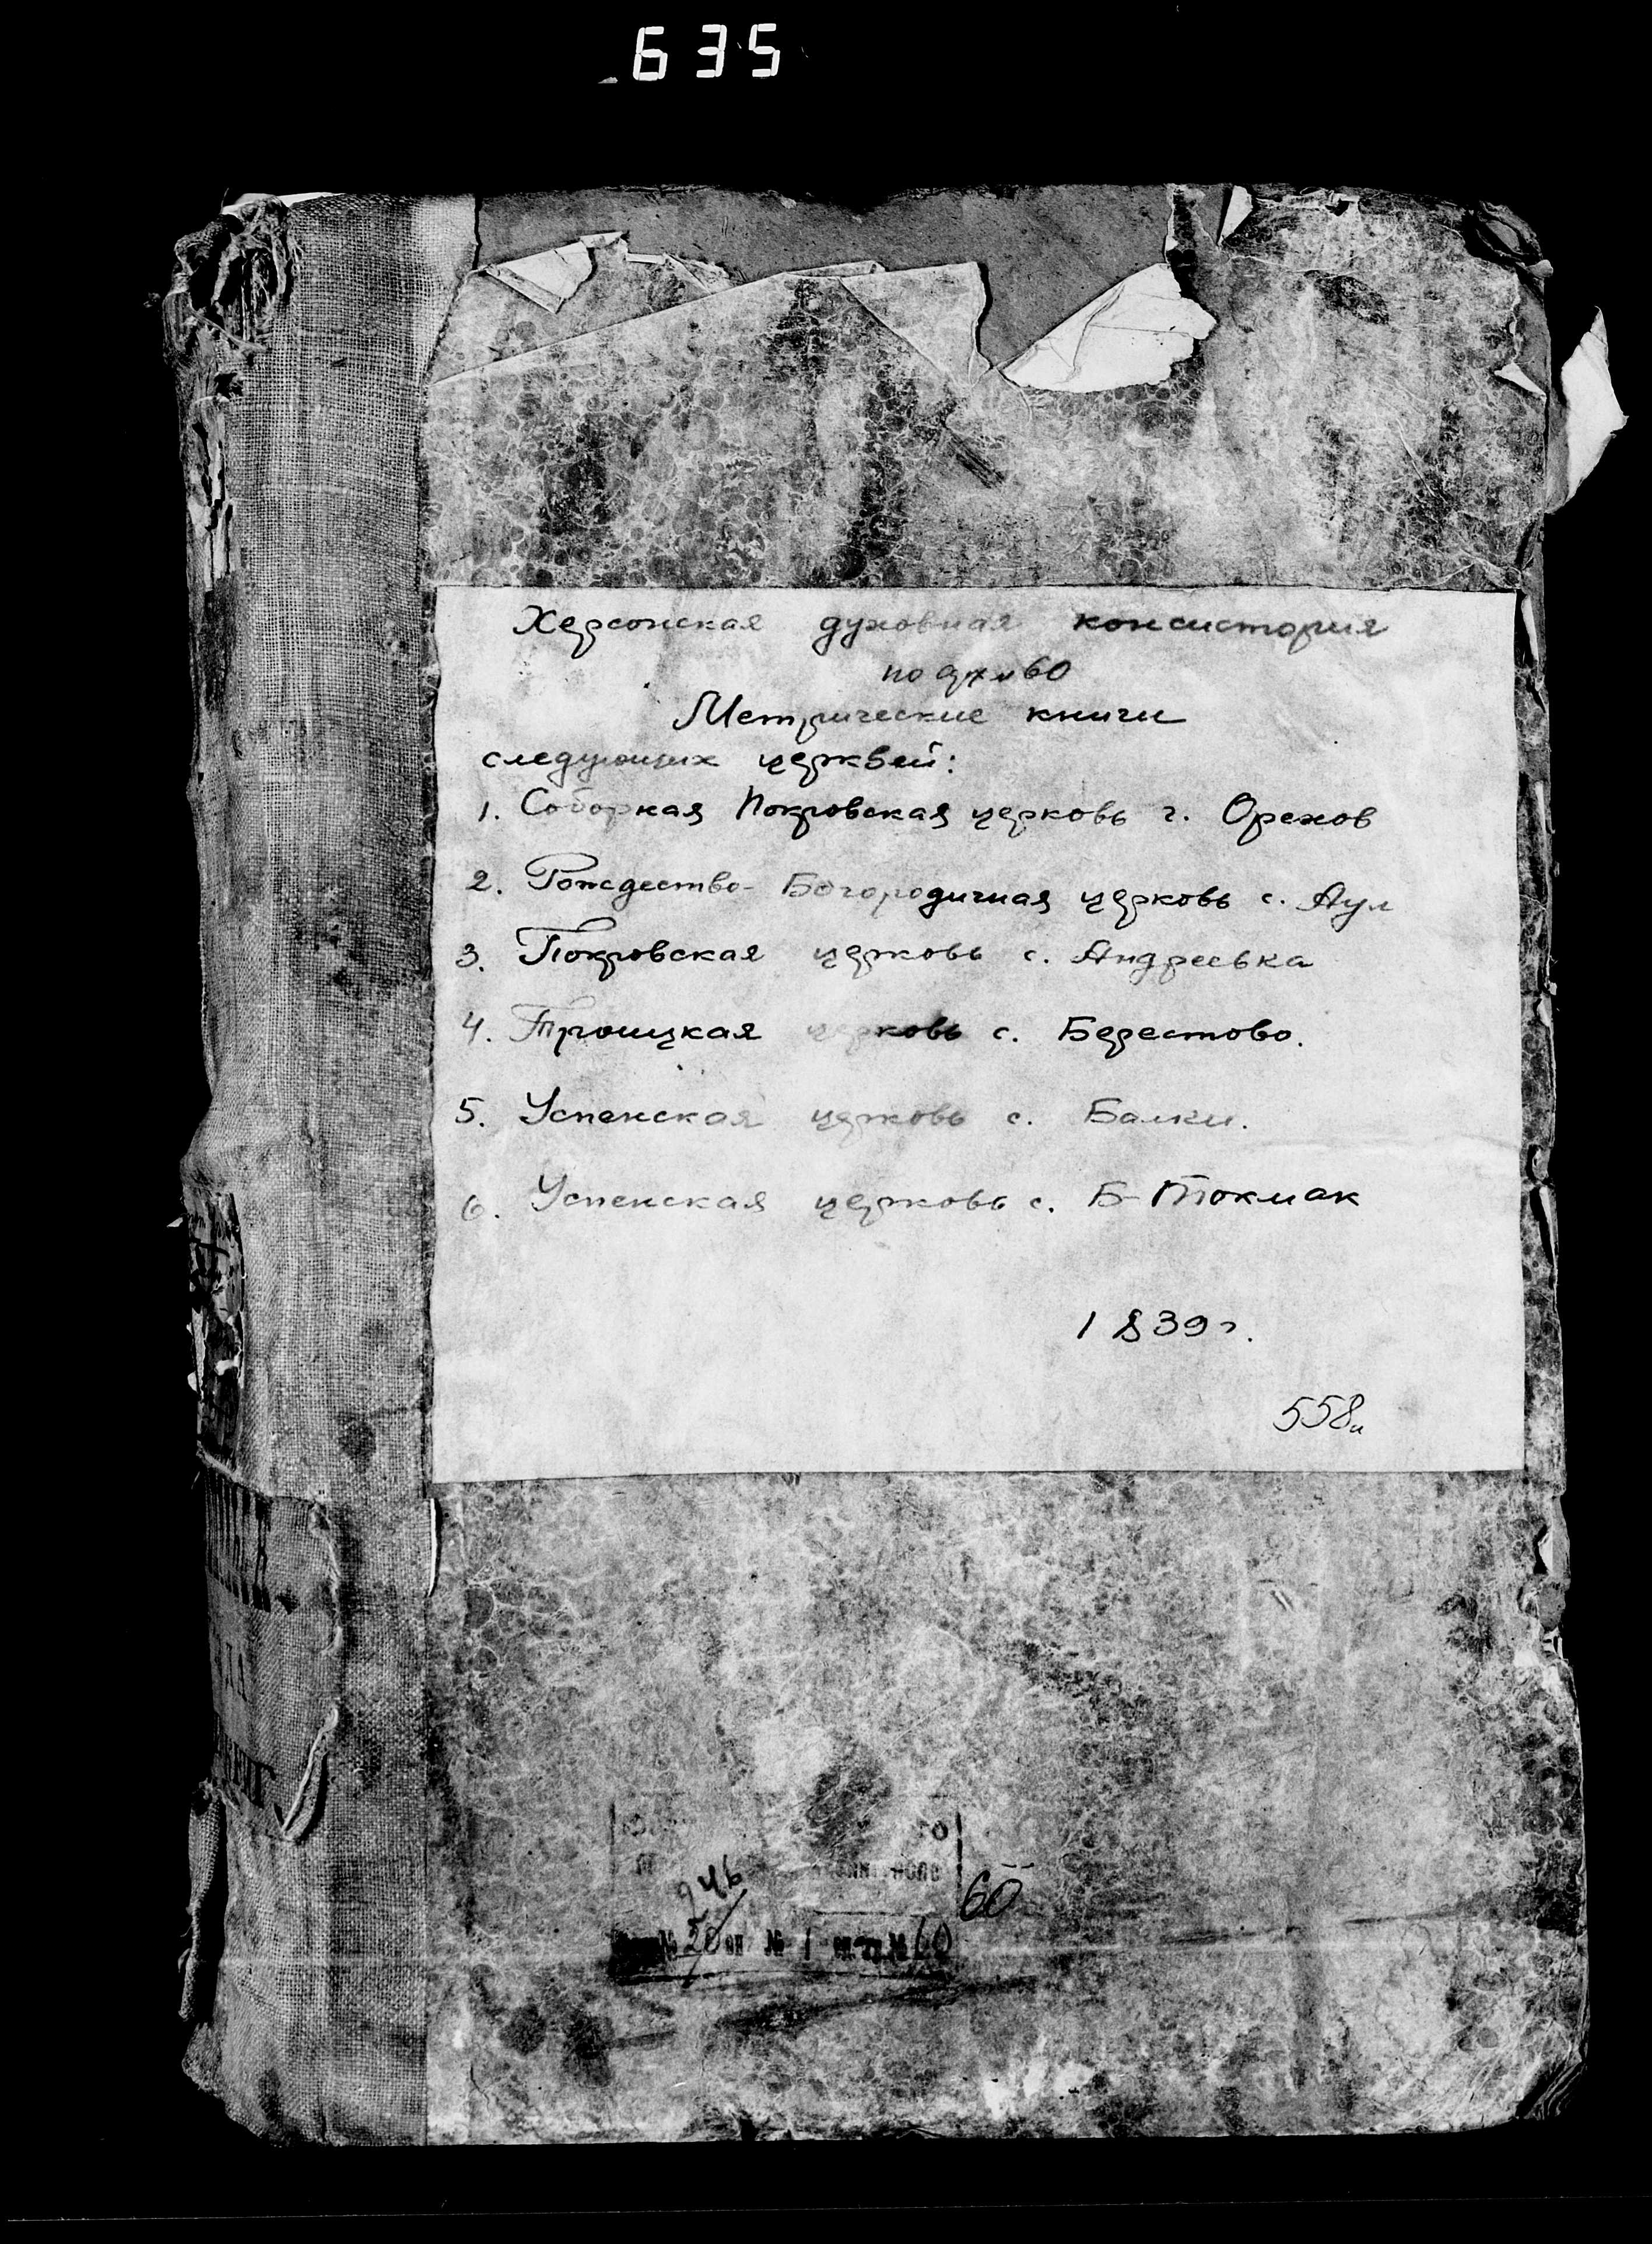 635
Херсонская духовная консистория
по арх №60
Метрические книги
следующих церквей:
1. Соборная Покровская церковь г. Орехов
2. Рождество-Богородичная церковь с. Аул
3. Покровская церковь с. Андреевка
4. Троицкая церковь с. Берестово.
5. Успенская церковь с. Балки.
6. Успенская церковь с. Б-Токмак
1839г.
558л
60
№ 1